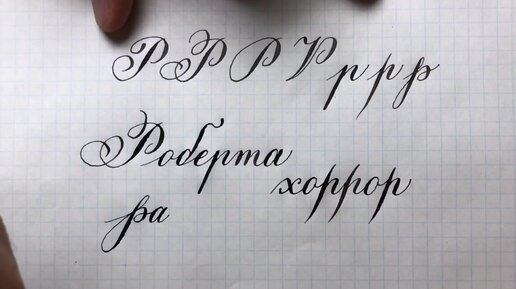 Р Р Р Р р р р
Роберта
хоррор
ра